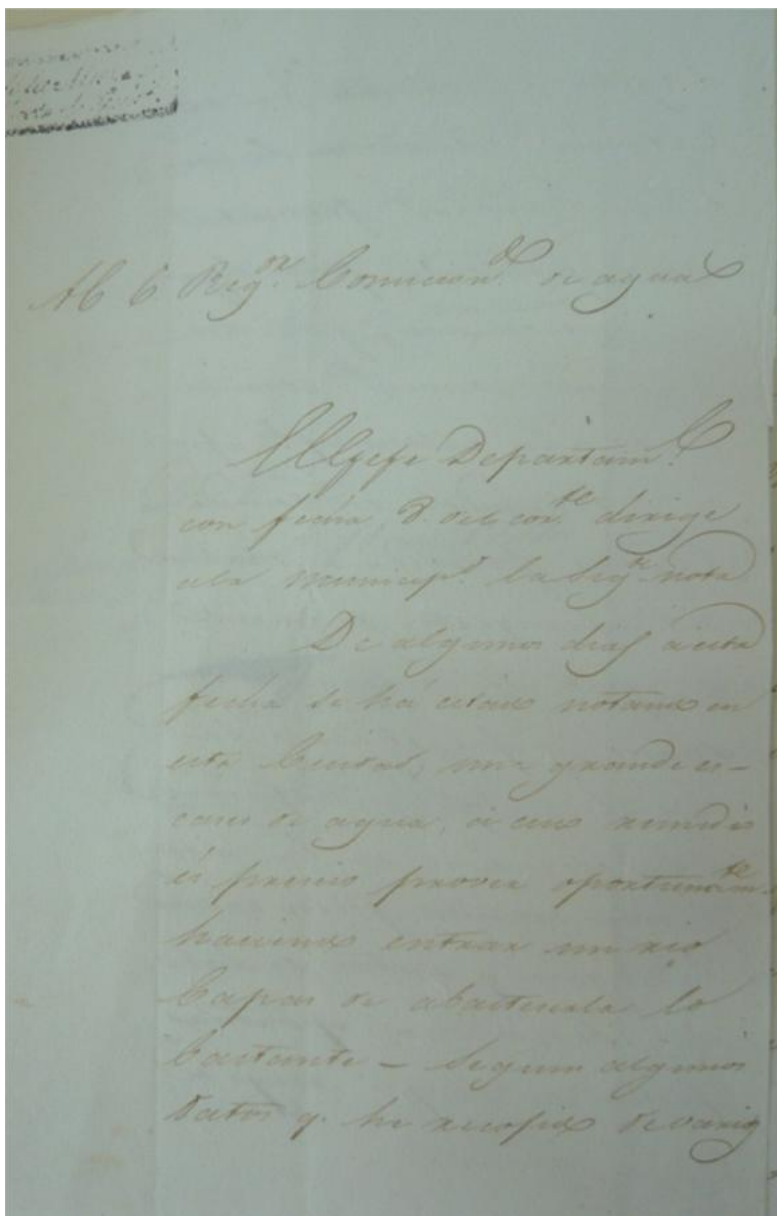 Al C Reg.or Comicion.do de aguas
El Gefe Departam.l
con fecha 8. del cor.te dirige
ala Municip.d la sig.te nota
De algunos dias aesta
fecha se há estado notando en
esta Ciudad, una grande es-
cases de agua, á cuio remedio
és preciso prover oportunam.te
haciendo entrar un rio
Capas de abastecerla lo
bastante – Segun algunos
datos q. he recojido de varios